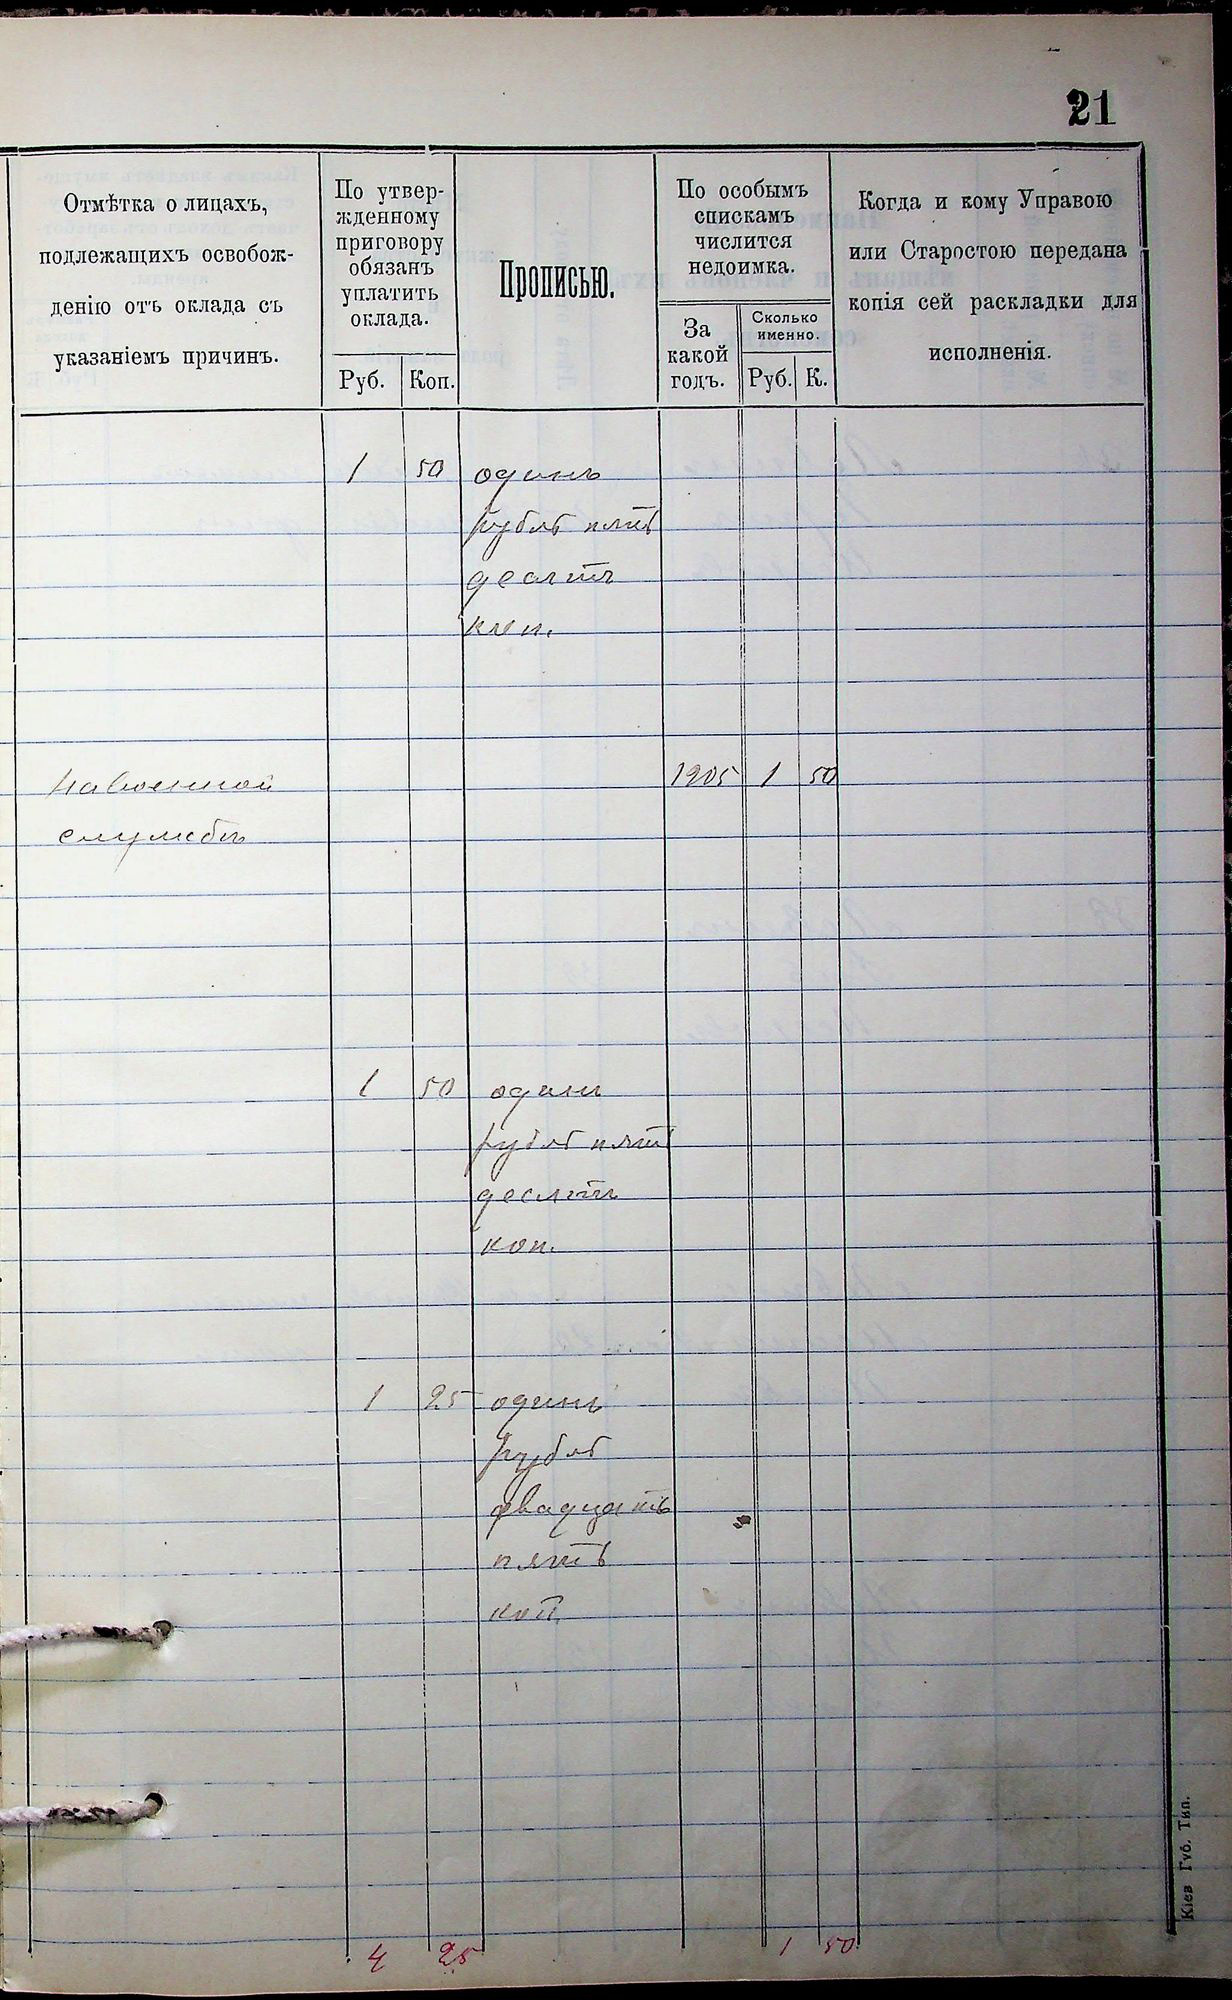 21
Отмѣтка о лицахъ,
подлежащихъ освобож-
денію отъ оклада съ
указаніемъ причинъ.
По утвер-
жденному
приговору
обязанъ
уплатить
оклада.
Руб. Коп.
Прописью.
По особымъ
спискамъ
числится
недоимка.
За
какой
годъ.
Сколько
именно.
Руб. К.
Когда и кому Управою
или Старостою передана
копія сей раскладки для
исполненія.
1 50 одинъ
рубль пять
десятъ
коп.
на военной 1905 1 50
службѣ
1 50 одинъ
рубль пять
десятъ
коп.
1 25 одинъ
рубль
двадцать
пять
коп.
4 25 1 50
Кіев Губ. Тип.